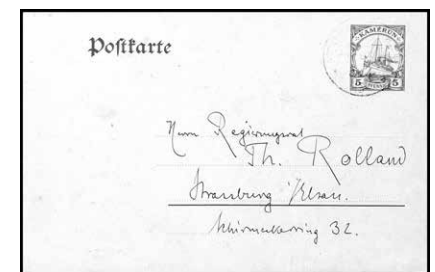 Postkarte
KAMERUN
5 PFENNIG 5
Herrn Regierungsrat
Th. Rolland
Strassburg /Elsass.
Schirmeckerring 32.